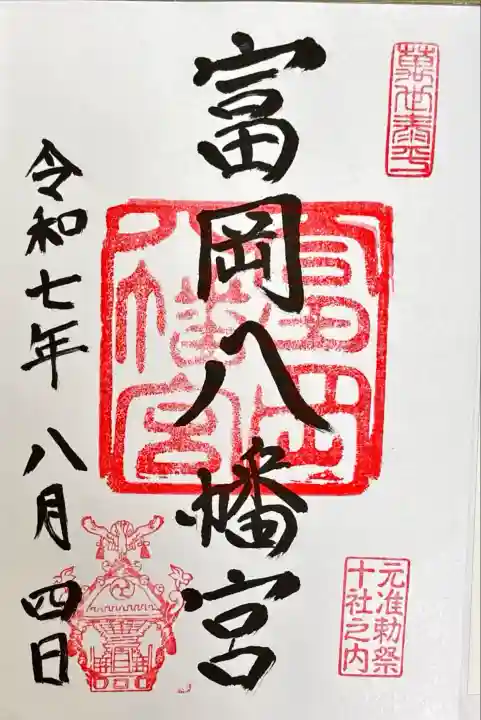 萬世泰平
富岡八幡宮
富岡八幡宮
元准勅祭
十社之内
令和七年 八月 四日